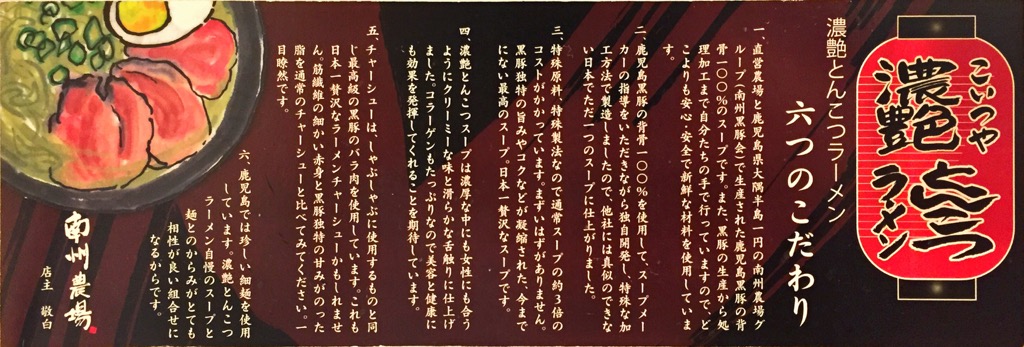 こいつや
濃艶とんこつ
ラーメン
濃艶とんこつラーメン
六つのこだわり
一、直営農場と鹿児島県大隅半島一円の南州農場グ
ループ(南州黒豚会)で生産された鹿児島黒豚の背
骨一〇〇%のスープです。また、黒豚の生産から処
理加工まで自分たちの手で行っていますので、ど
こよりも安心・安全で新鮮な材料を使用していま
す。
二、鹿児島黒豚の背骨一〇〇%を使用して、スープメー
カーの指導をいただきながら独自開発し、特殊な加
工方法で製造しましたので、他社には真似のできな
い日本でただ一つのスープに仕上がりました。
三、特殊原料、特殊製法なので通常スープの約3倍の
コストがかかっています。まずいはずがありません。
黒豚独特の旨みやコクなどが凝縮された、今まで
にない最高のスープ。日本一贅沢なスープです。
四、濃艶とんこつスープは濃厚な中にも女性にも合う
ようにクリーミーな味と滑らかな舌触りに仕上げ
ました。コラーゲンもたっぷりなので美容と健康に
も効果を発揮してくれることを期待しています。
五、チャーシューは、しゃぶしゃぶに使用するものと同
じ最高級の黒豚のバラ肉を使用しています。これも
日本一贅沢なラーメンチャーシューかもしれませ
ん。筋繊維の細かい赤身と黒豚独特の甘みがのった
脂を通常のチャーシューと比べてみてください。一
目瞭然です。
六、鹿児島では珍しい細麺を使用
しています。濃艶とんこつ
ラーメン自慢のスープと
麺とのからみがとても
相性が良い組合せに
なるからです。
南州農場
店主 敬白